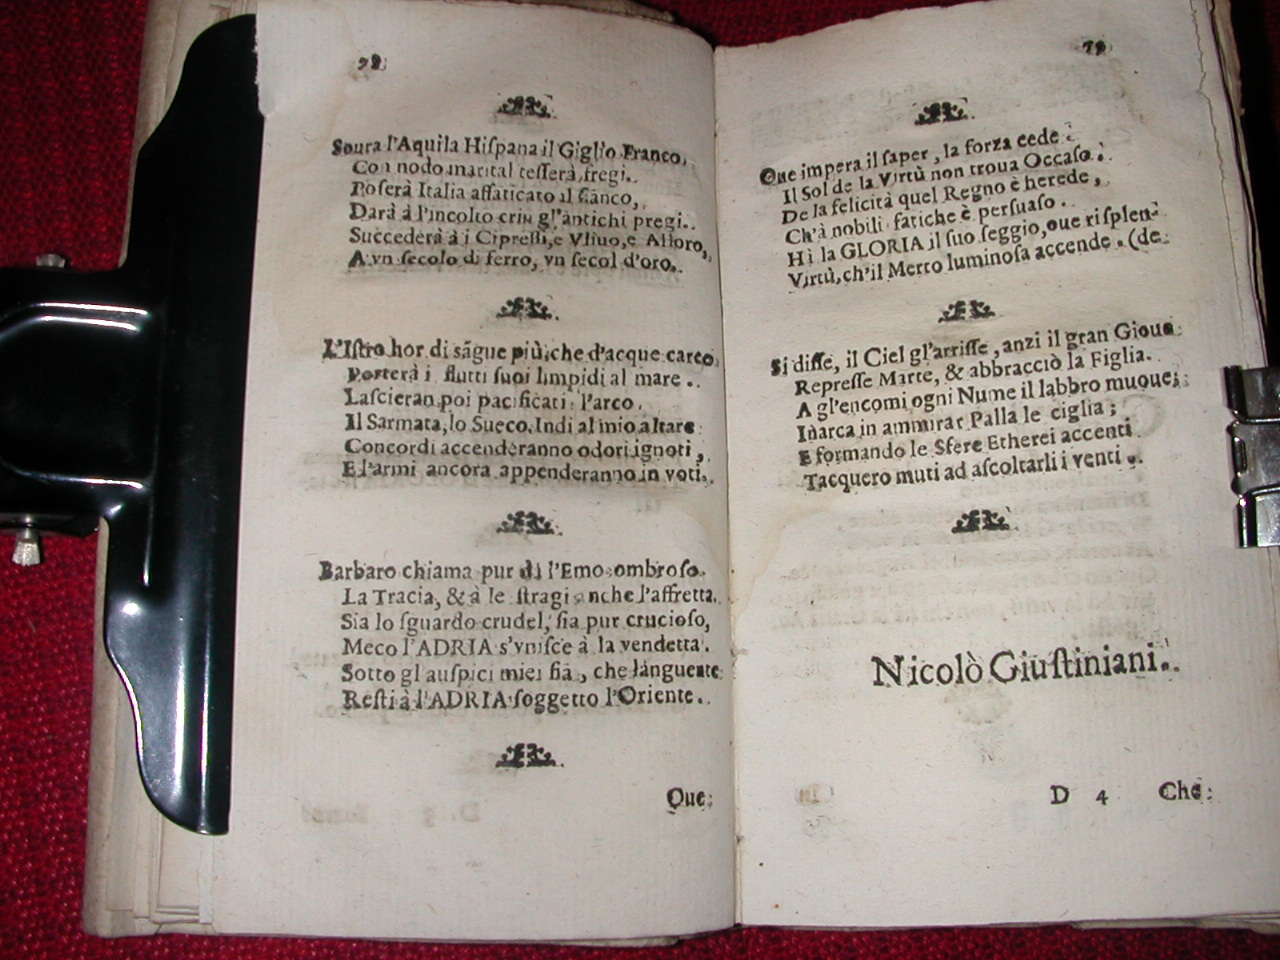 78
Soura l'Aquila Hiſpana il Giglio Franco,
Con nodo marital teſſerà fregi.
Poſerà Italia affaticato il fiãnco,
Darà à l'incolto crin gl'antichi pregi.
Succederà à i Cipreſſi, e Vliuo, e Alloro,
A vn ſecolo di ferro, vn ſecol d'oro.
L'Iſtro hor di sãgue più, che d'acque carco
Porterà i flutti ſuoi limpidi al mare.
Laſcieran poi pacificati l'arco
Il Sarmata, lo Sueco. Indi al mio altare
Concordi accenderanno odori ignoti,
E l'armi ancora appenderanno in voti.
Barbaro chiama pur di l'Emo ombroſo
La Tracia, & à le ſtragi anche l'affretta.
Sia lo ſguardo crudel, ſia pur crucioſo,
Meco l'ADRIA s'vniſce à la vendetta.
Sotto gl'auſpici miei fia, che languente
Reſti à l'ADRIA ſoggetto l'Oriente.
Oue
79
Oue impera il ſaper, la forza cede:
Il Sol de la Virtù non troua Occaſo.
De la felicità quel Regno è herede,
Ch'à nobili fatiche è perſuaſo.
Hà la GLORIA il ſuo ſeggio, oue riſplen-
Virtù, ch'il Merto luminoſa accende. (de
Si diſſe, il Ciel gl'arriſſe, anzi il gran Gioue
Repreſſe Marte, & abbracciò la Figlia.
A gl'encomi ogni Nume il labbro muoue;
Inarca in ammirar Palla le ciglia;
E formando le Sfere Etherei accenti
Tacquero muti ad aſcoltarli i venti.
Nicolò Giuſtiniani.
D 4 Che